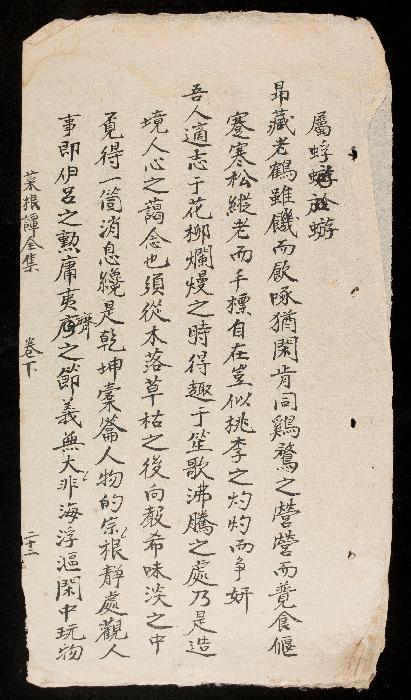 屬蜉蝣於蝣
昂藏老鶴雖饑而飲啄猶閑肯同鷄鶩之營營而竸食偃
蹇寒松縱老而丰標自在豈似桃李之灼灼而争妍
吾人適志于花柳爛熳之時得趣于笙歌沸騰之處乃是造
境人心之藹念也須從木落草枯之後向希味淡之中
覓得一箇消息纔是乾坤橐人物的宗根靜處觀人
事即伊呂之勲庸夷齊之節義無大非海浮漚閑中玩物
菜根譚全集 卷下